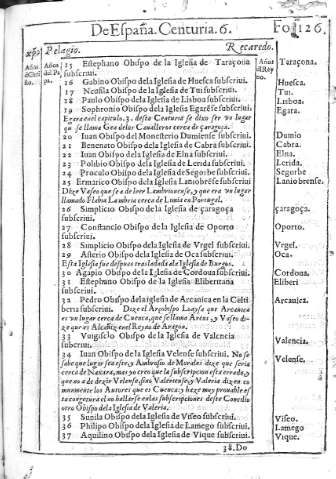 De España. Centuria. 6. Fo. 126.
Pelagio. Recaredo.
15 Estephano Obispo de la Iglesia de Taraçona Taraçona.
subscriui.
16 Gabino Obispo dela Iglesia de Huesca subscriui. Huesca.
17 Neofila Obispo de la Iglesia de Tui subscriui. Tui.
18 Paulo Obispo dela Iglesia de Lisboa subscriui. Lisboa.
19 Sophronio Obispo dela Iglesia Egarése subscriui. Egara.
Egara en el capitulo. 3. deste Centuria se dixo ser vn lugar
que se llama Gea delos Caualleros cerca de çaragoça.
20 Iuan Obispo del Monesterio Dumiense subscriui. Dumio
21 Beneneto Obispo dela Iglesia de Cabra subscriui. Cabra.
22 Iuan Obispo dela Iglesia de Elna subscriui. Elna.
23 Polibio Obispo dela Iglesia de Lerida subscriui. Lerida.
24 Proculo Obispo dela Iglesia de Segorbe subscriui Segorbe
25 Ermarico Obispo dela Iglesia Laniobrése subscriui Laniobrense.
Dize Vaseo que se a de leer Lambriacense, y que era vn lugar
llamado Flabia Lambria cerca de Limia en Portugal.
26 Simplicio Obispo dela Iglesia de çaragoça çaragoça.
subscriui.
27 Constancio Obispo dela Iglesia de Oporto Oporto.
subscriui.
28 Simplicio Obispo dela Iglesia de Vrgel subscriui Vrgel.
29 Asterio Obispo dela Iglesia de Oca subscriui. Oca.
Esta Iglesia fue despues trasladada ala Iglesia de Burgos.
30 Agapio Obispo dela Iglesia de Cordoua subscriui. Cordoua.
31 Estephano Obispo dela Iglesia Eliberitana Eliberi
subscriui.
32 Pedro Obispo dela Iglesia de Arcauica en la Celti Arcauica.
beria subscriui. Dize el Arçobispo Loaysa que Arcauica
es vn lugar cerca de Cuenca, que se llama Arcas, y Vaseo di-
ze que es Alcañiz en el Reyno de Aragon.
33 Vuigisclo Obispo dela Iglesia de Valencia Valencia.
subscriui.
34 Iuan Obispo dela Iglesia Velense subscriui. No se Velense.
sabe que lugar sea este, y Ambrosio de Morales dize que seria
cerca de Naxara, mas yo creo que la subscripcion esta errada, y
que no a de dezir Velense, sino Valeriense, y Valeria dizen co
munmente los Autores que es Cuenca; y haze muy prouable es
ta conjetura el no hallarse en las subscripciones deste Concilio
otro Obispo dela Iglesia de Valeria.
35 Sunila Obispo dela Iglesia de Viseo subscriui. Viseo.
36 Philipo Obispo dela Iglesia de Lamego subscriui Lamego
37 Aquilino Obispo dela Iglesia de Vique subscriui. Vique.
38. Do